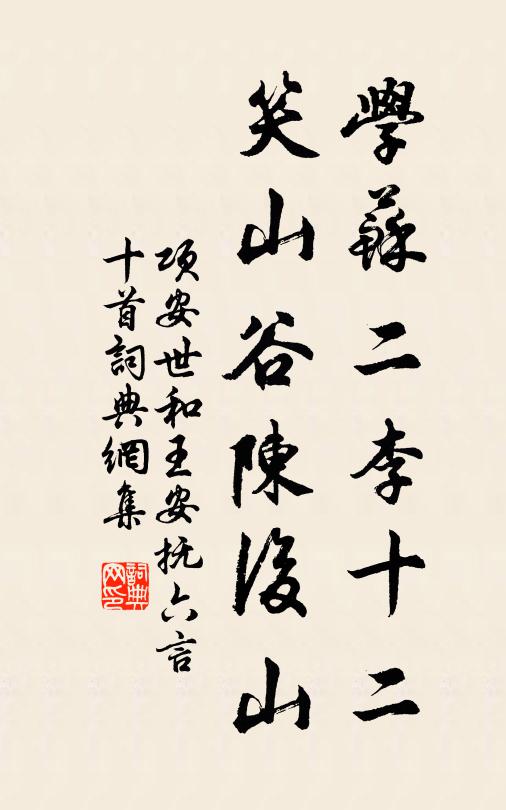 學蘇二李十二
笑山谷陳後山
項安世和王安抚六言
十首詞典網集
詞典网印